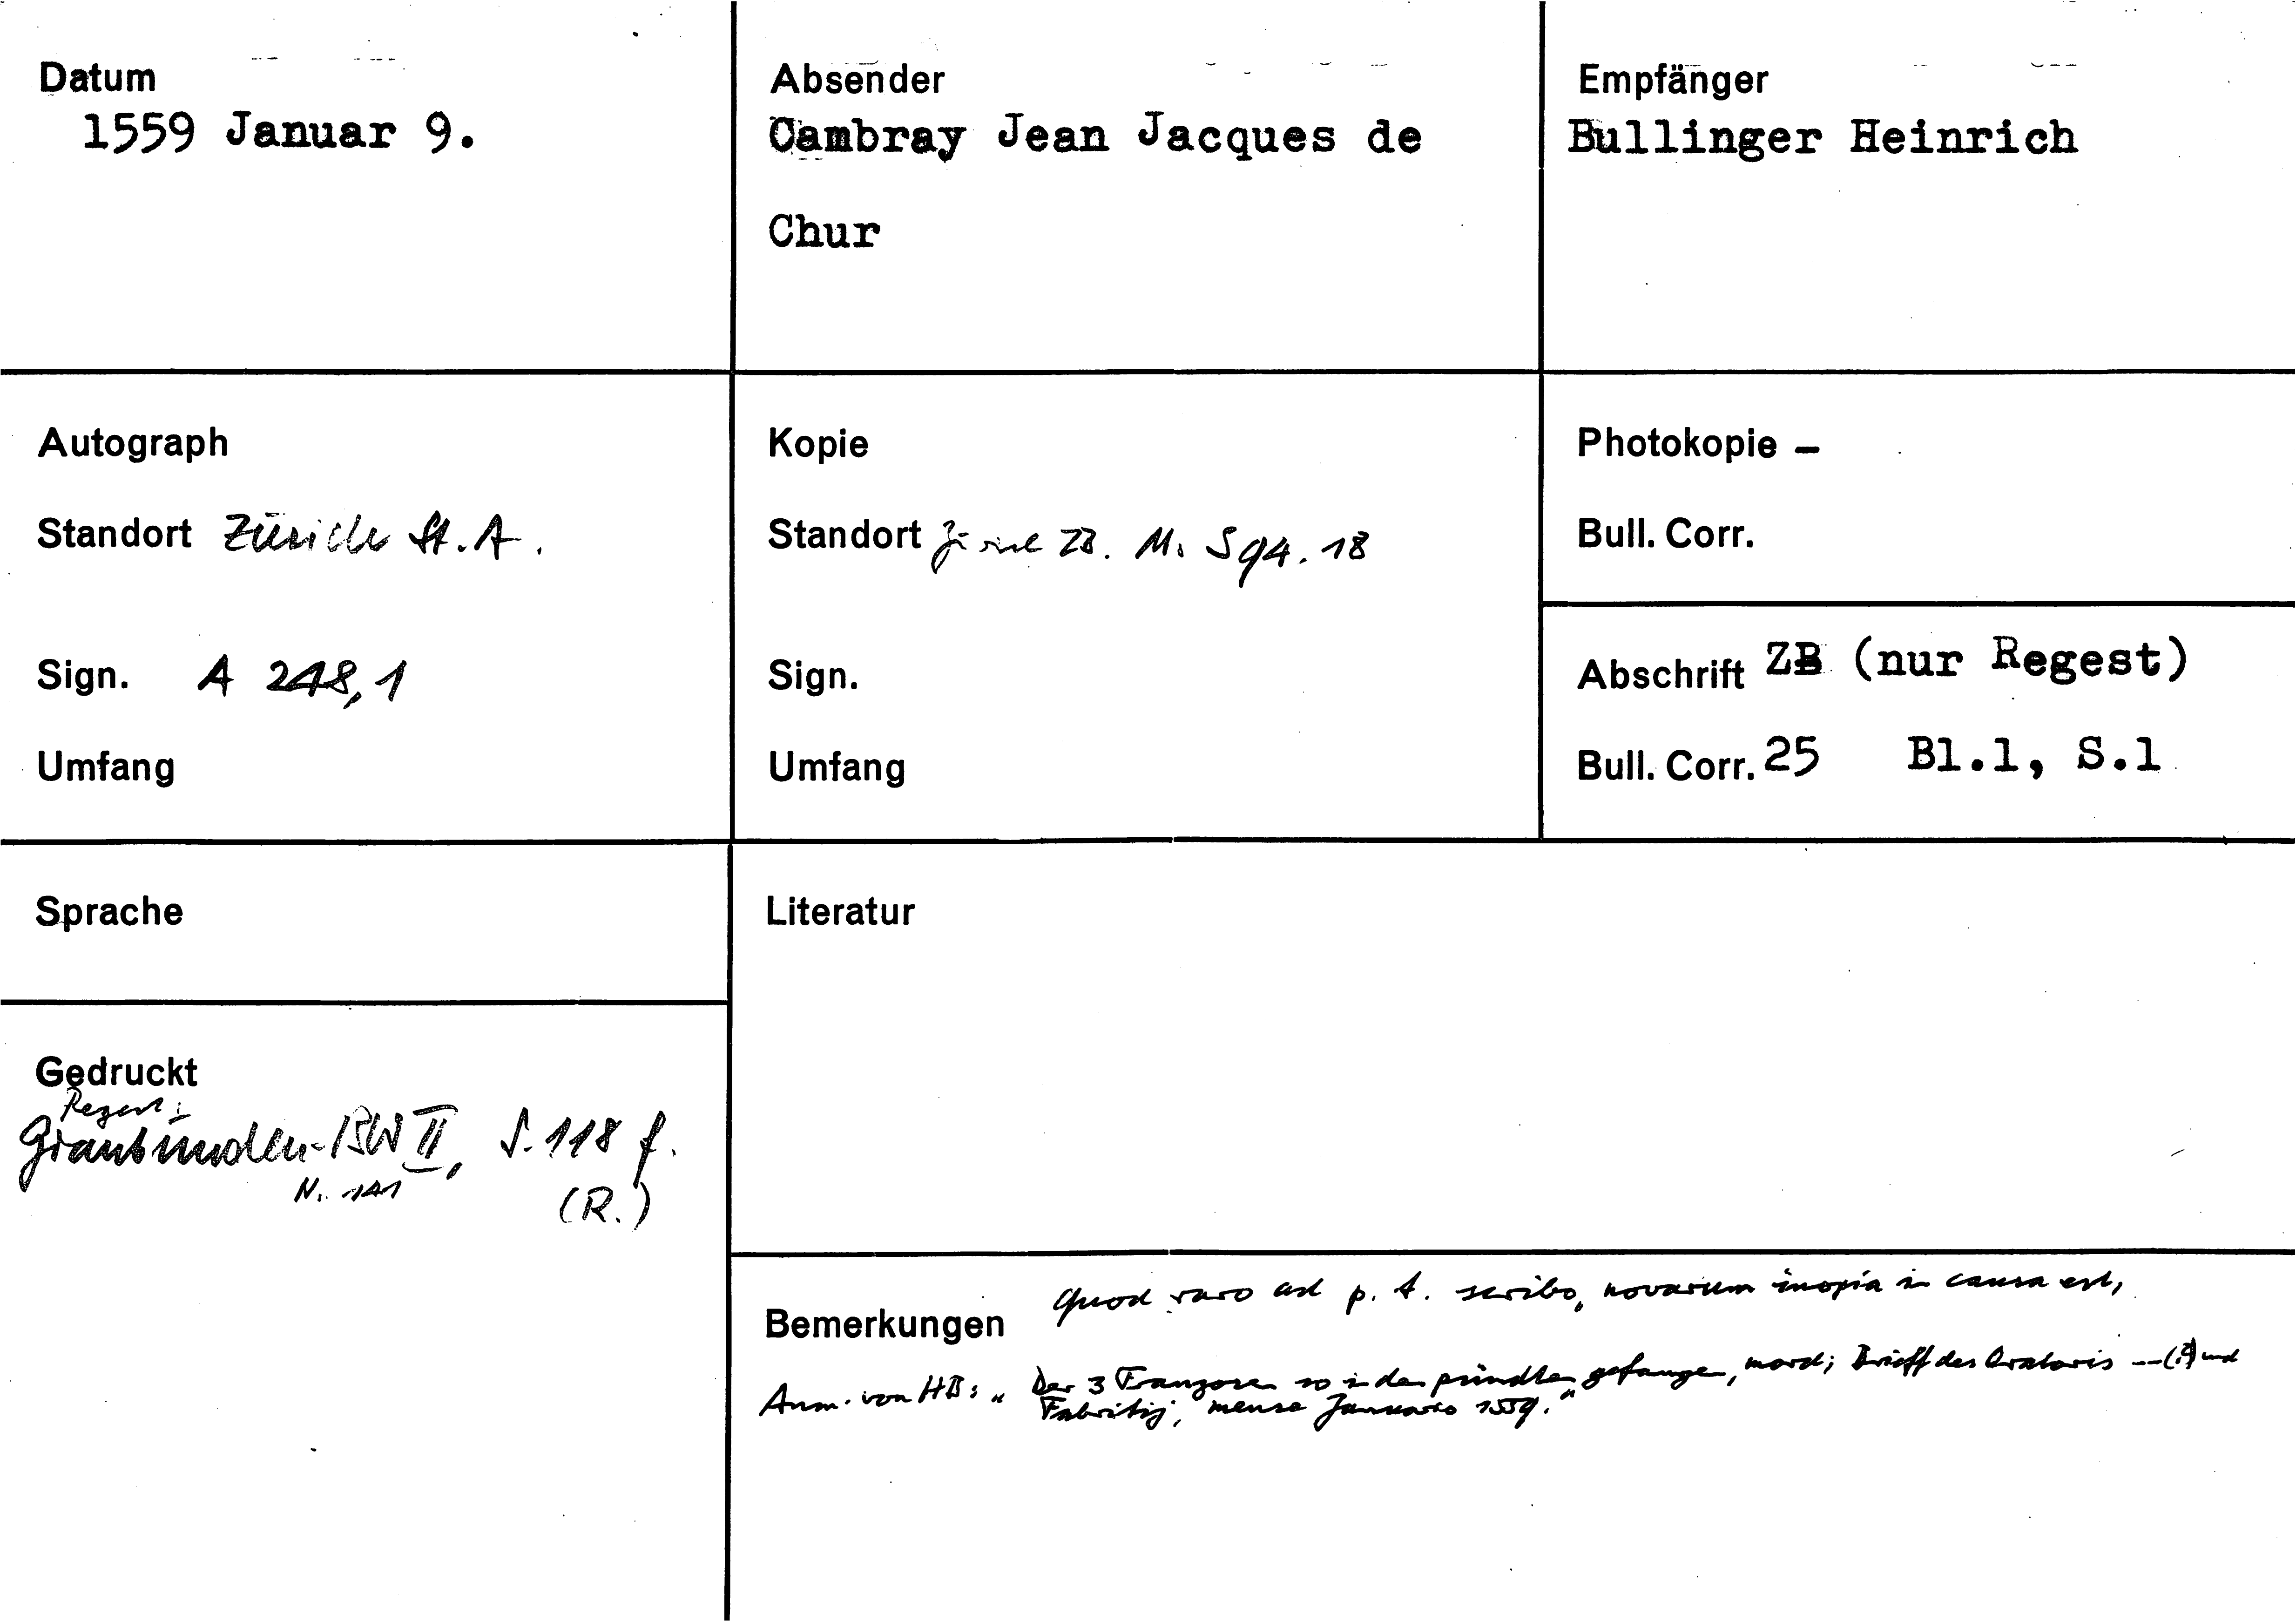 Datum
1559 Januar 9.
Absender
Cambray Jean Jacques de
Chur
Empfänger
Bullinger Heinrich
Autograph
Standort Zürich St. A.
Sign. A 248,1
Umfang
Kopie
Standort Zürich ZB. Ms S 94. 18
Sign.
Umfang
Photokopie –
Bull. Corr.
Abschrift ZB (nur Regest)
Bull. Corr. 25 Bl.1, S.1
Sprache
Literatur
Gedruckt
Regest:
Graubünden-BW II, S. 118 f.
N. 141
(R.)
Bemerkungen
Quod raro ad p. t. scribo, novarum inopia in causa est,
Anm. von HB: "Der 3 Franzosen so in den pündten gefangen, mord; Brieff des Oratoris --(?) und
Fabritij, mense Januario 1559."